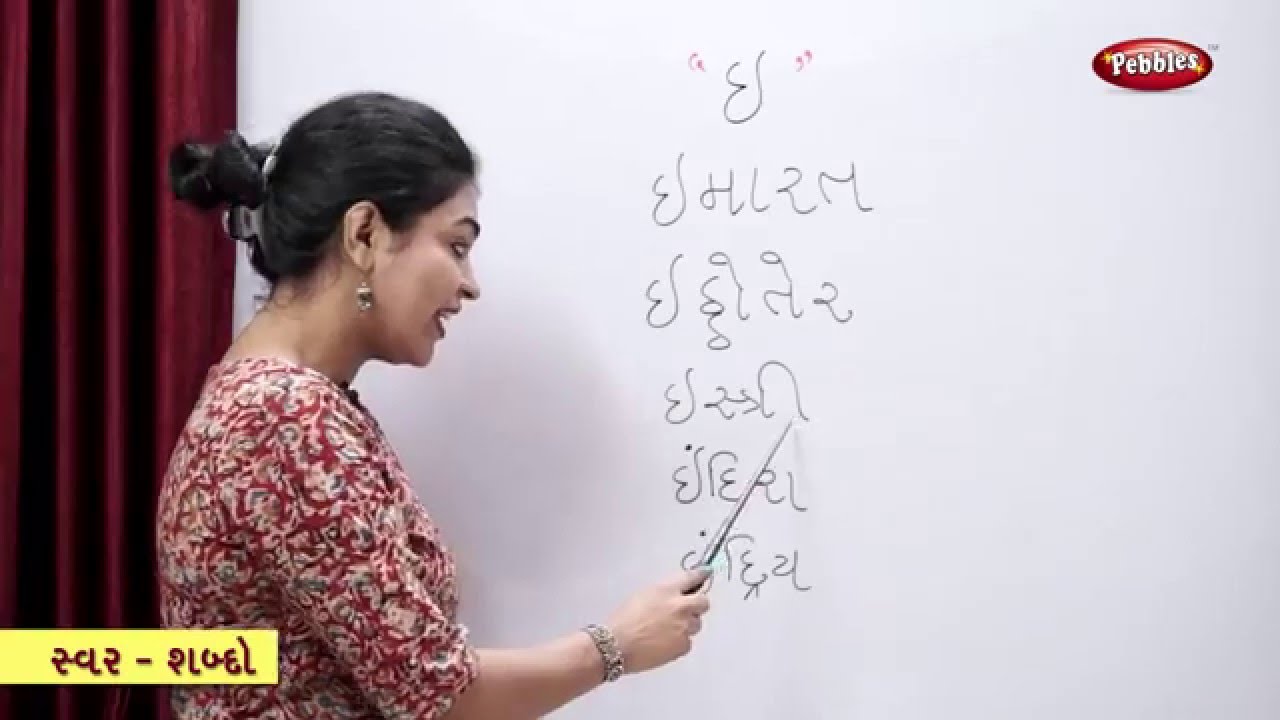 “ઇ”
Pebbles™
ઇમારત
ઇઠ્ઠોતેર
ઇસ્ત્રી
ઇંદિરા
ઇંદ્રિય
સ્વર - શબ્દો